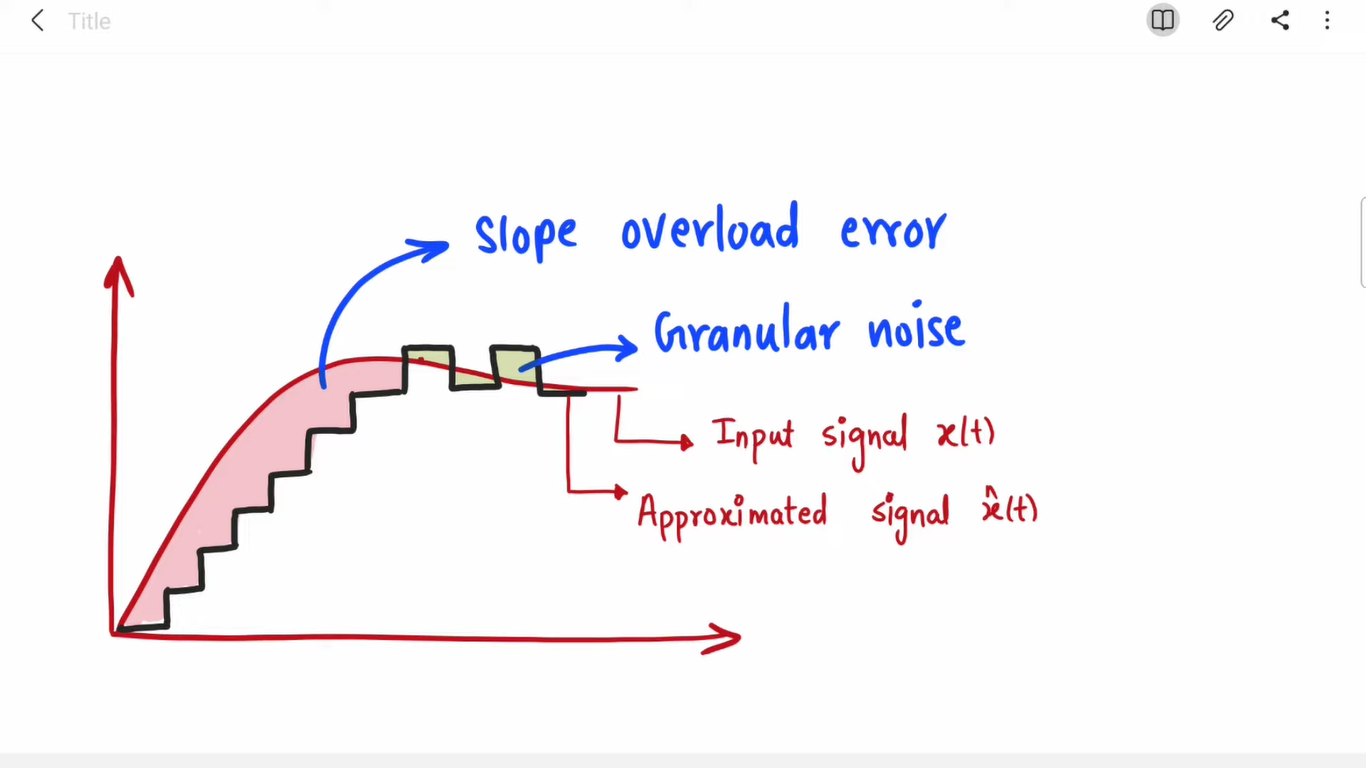 Title
Slope overload error
Granular noise
Input signal x(t)
Approximated signal x̂(t)